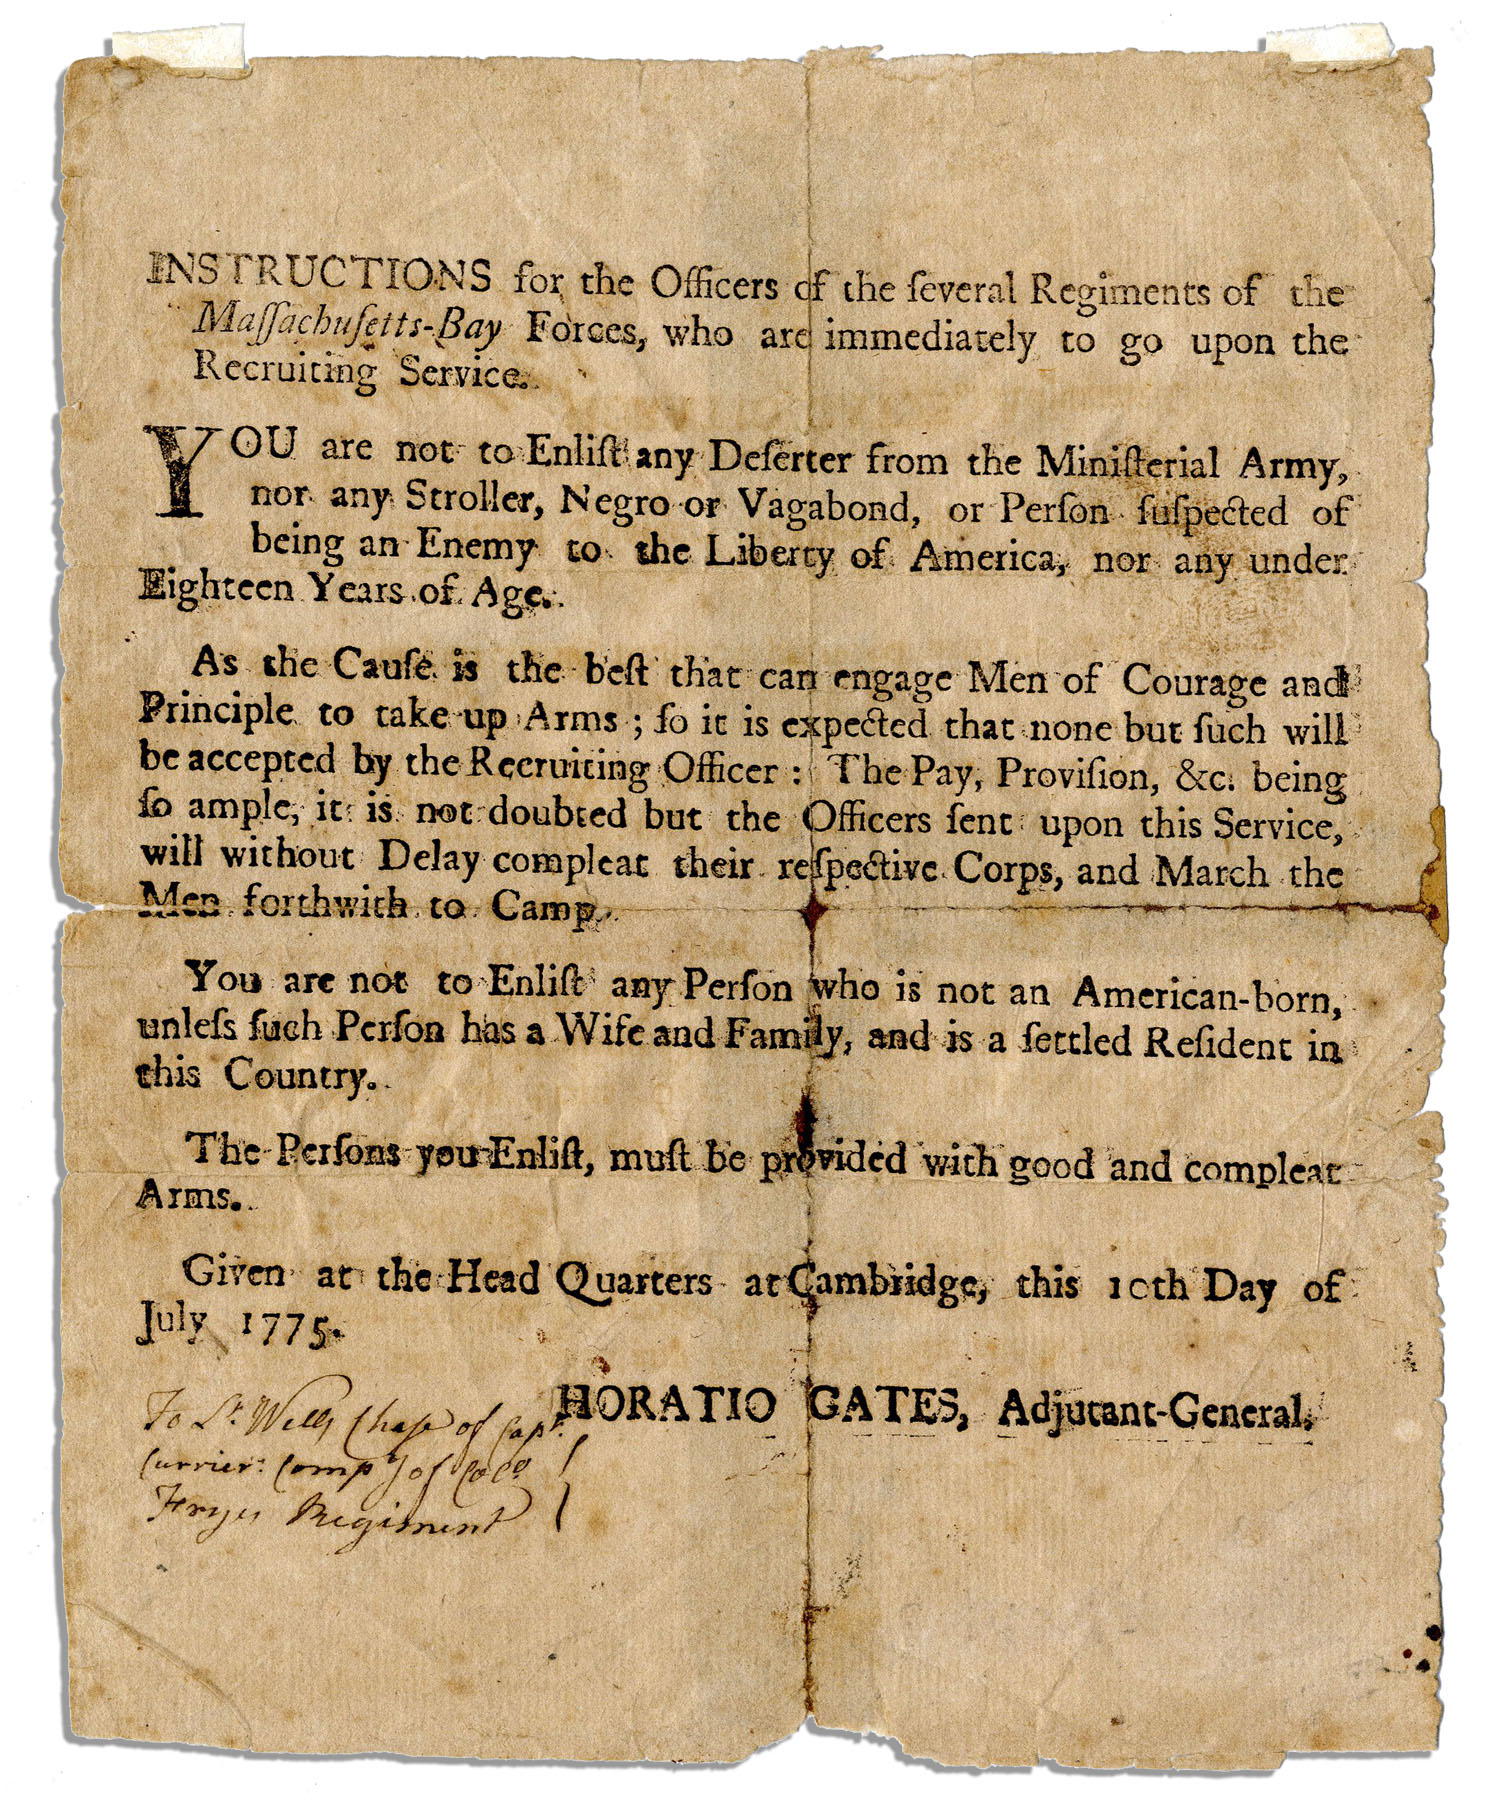 INSTRUCTIONS for the Officers of the ſeveral Regiments of the
Maſſachuſetts-Bay Forces, who are immediately to go upon the
Recruiting Service.
YOU are not to Enliſt any Deſerter from the Miniſterial Army,
nor any Stroller, Negro or Vagabond, or Perſon ſuſpected of
being an Enemy to the Liberty of America, nor any under
Eighteen Years of Age.
As the Cauſe is the beſt that can engage Men of Courage and
Principle to take up Arms ; ſo it is expected that none but ſuch will
be accepted by the Recruiting Officer : The Pay, Proviſion, &c. being
ſo ample, it is not doubted but the Officers ſent upon this Service,
will without Delay compleat their reſpective Corps, and March the
Men forthwith to Camp.
You are not to Enliſt any Perſon who is not an American-born,
unleſs ſuch Perſon has a Wife and Family, and is a ſettled Reſident in
this Country.
The Perſons you Enliſt, muſt be provided with good and compleat
Arms.
Given at the Head Quarters at Cambridge, this 10th Day of
July 1775.
HORATIO GATES, Adjutant-General.
To Lt. Wells Chase of Capt.
Currier: Compy of Colo
Fryes Regiment